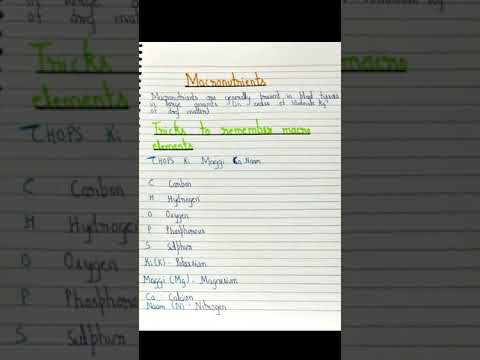 Macronutrients
Macronutrients are generally present in plant tissues
in large amounts (in excess of 10mmole Kg⁻¹
of dry matter)
Tricks to remember macro
elements
CHOPS Ki Maggi Ca Naam
C Carbon
H Hydrogen
O Oxygen
P Phosphorous
S Sulphur
Ki (K) - Potassium
Maggi (Mg) - Magnesium
Ca Calcium
Naam (N) - Nitrogen